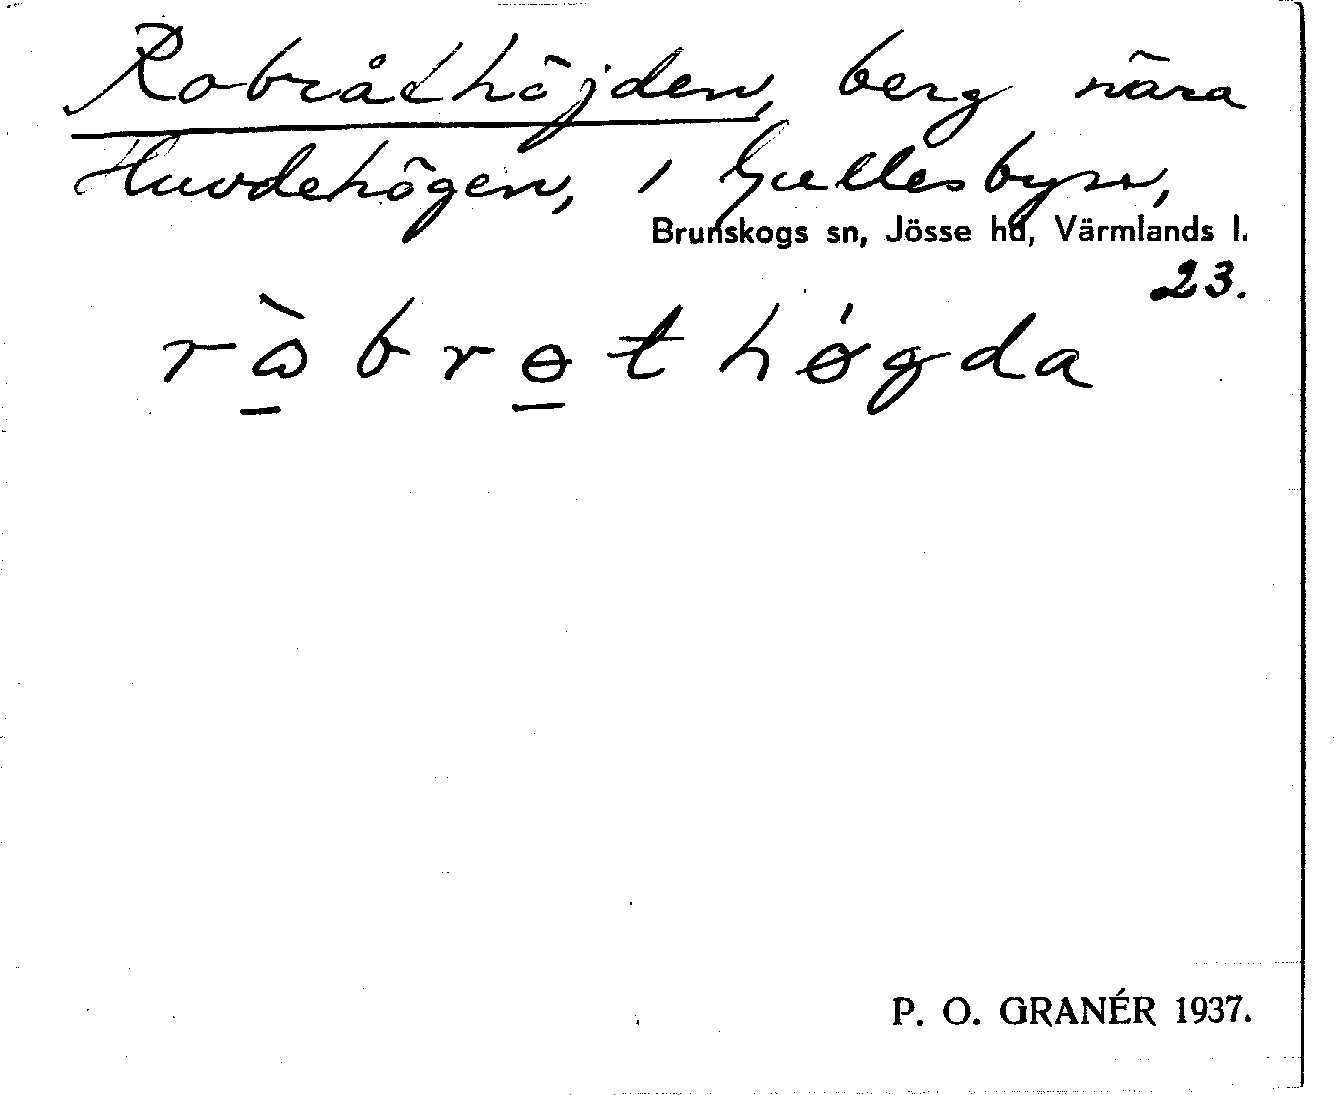 Robråthöjden, berg nära
Huvdehögen, i Gullesbyn,
Brunskogs sn, Jösse hd, Värmlands l.
23.
rò̱brɵ̱thǿgda
P. O. GRANÉR 1937.